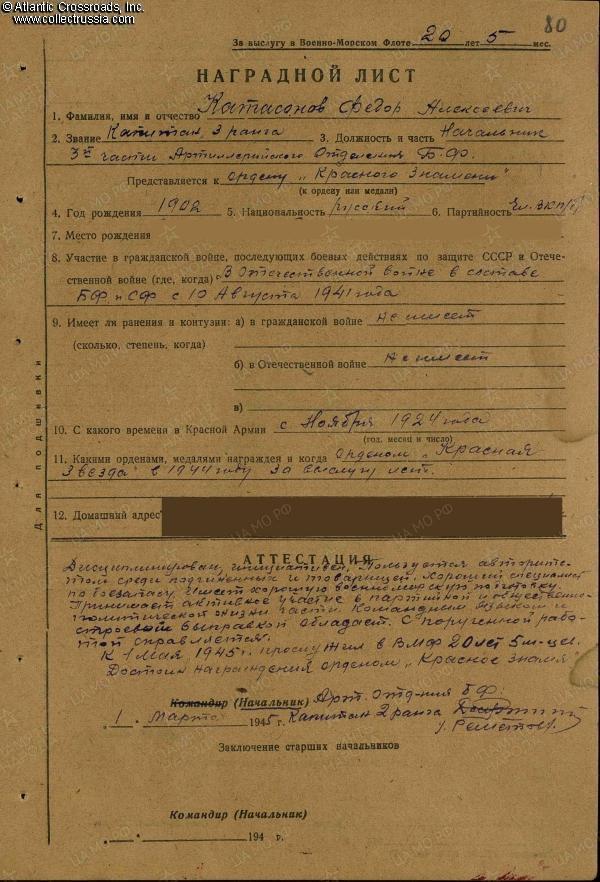 © Atlantic Crossroads, Inc.
www.collectrussia.com
80
За выслугу в Военно-Морском Флоте 20 лет 5 мес.
НАГРАДНОЙ ЛИСТ
1. Фамилия, имя и отчество Катасонов Федор Алексеевич
2. Звание Капитан 3 ранга 3. Должность и часть Начальник
3й части Артиллерийского Отделения Б.Ф.
Представляется к ордену „Красного Знамени"
(к ордену или медали)
4. Год рождения 1902 5. Национальность русский 6. Партийность Чл. ВКП(б)
7. Место рождения
8. Участие в гражданской войне, последующих боевых действиях по защите СССР и Отече-
ственной войне (где, когда) В Отечественной войне в составе
БФ и СФ с 10 Августа 1941 года
9. Имеет ли ранения и контузии: а) в гражданской войне Не имеет
(сколько, степень, когда)
б) в Отечественной войне Не имеет
в)
10. С какого времени в Красной Армии с Ноября 1924 года
(год, месяц и число)
11. Какими орденами, медалями награжден и когда орденом „Красная
Звезда" в 1944 году за выслугу лет.
12. Домашний адрес
Для подшивки
АТТЕСТАЦИЯ
Дисциплинирован, инициативен. Пользуется авторите-
том среди подчиненных и товарищей. Хороший специалист
по боезапасу. Имеет хорошую военноморскую подготовку.
Принимает активное участие в партийной и общественно-
политической жизни части. Командным языком и
строевой выправкой обладает. С порученной рабо-
той справляется.
К 1 Мая 1945 г. прослужил в ВМФ 20 лет 5 м-цев.
Достоин награждения орденом „Красное Знамя"
Командир (Начальник) Арт. Отд-ния БФ.
1 Марта 1945 г. Капитан 2 ранга
Заключение старших начальников
Командир (Начальник)
194 г.
ЦА МО РФ